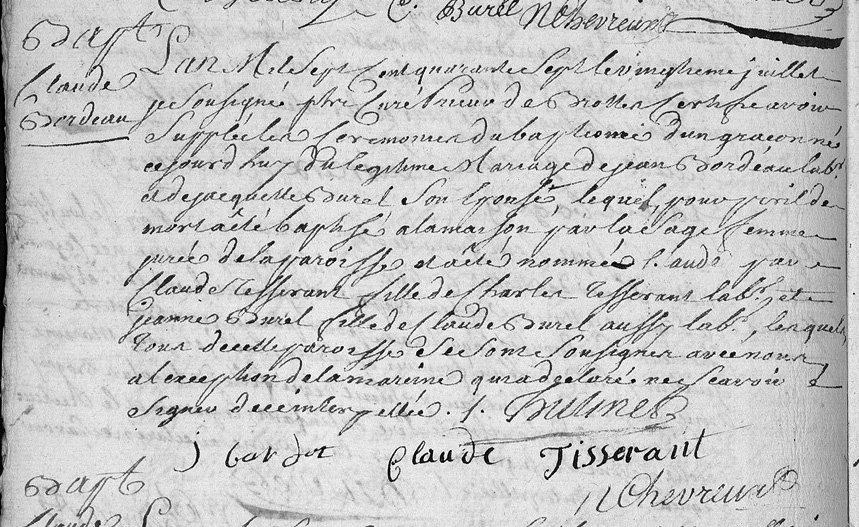 C. Burel N Chevreux
Bapt
Claude
Bordeau
L'an Mil Sept Cent quarante Sept le vingtieme juillet
je Soussigné ptre Curé prieur de Brottes Certifie avoir
Suppléé les Ceremonies du baptesme d'un graçon né
cejourd'huy du legitime Mariage de jean Bordeau labr
et de jacquette Burel Son Epouse, lequel, pour peril de
mort a êté baptisé a la maison par la Sage femme
jurée de la paroisse et a êté nommé Claude par
Claude Tisserant fille de Charles Tisserant labr, et
jeanne Burel fille de Claude Burel aussy labr, lesquels
tous de cette paroisse et se sont Soussignes avec nous
a l'exception de la mareine qui a declaré ne Scavoir
Signer de ce interpellée. /.
j bardot Claude Tisserant
N Chevreux
Bapt
Claude